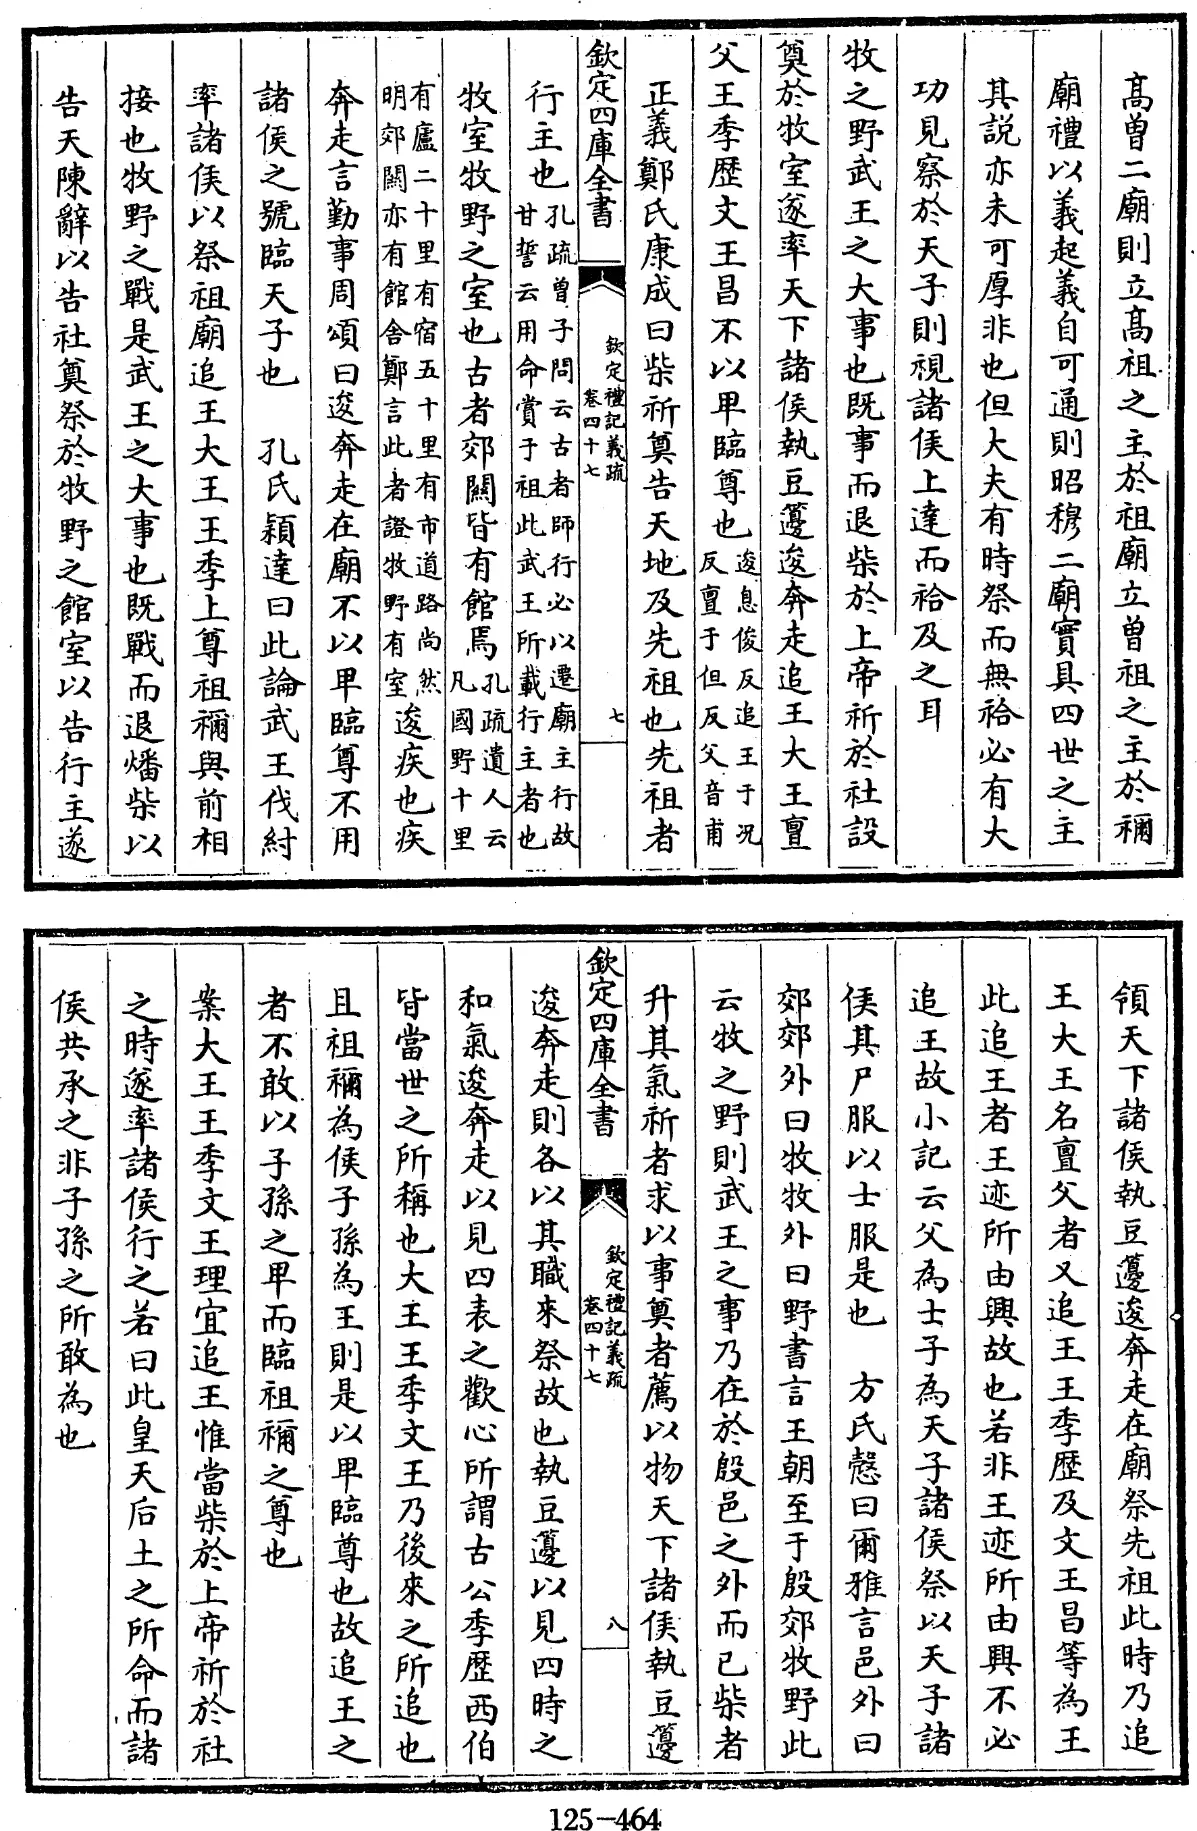 高曾二廟則立高祖之主於祖廟立曾祖之主於禰
廟禮以義起義自可通則昭穆二廟實具四世之主
其説亦未可厚非也但大夫有時祭而無祫必有大
功見察於天子則視諸侯上達而祫及之耳
牧之野武王之大事也既事而退柴於上帝祈於社設
奠於牧室遂率天下諸侯執豆籩逡奔走追王大王亶
父王季歴文王昌不以卑臨尊也逡息俊反追王于况
反亶于但反父音甫
正義鄭氏康成曰柴祈奠告天地及先祖也先祖者
欽定四庫全書
欽定禮記義疏
卷四十七
七
行主也孔疏曾子問云古者師行必以遷廟主行故
甘誓云用命賞于祖此武王所載行主者也
牧室牧野之室也古者郊關皆有館焉孔疏遺人云
凡國野十里
有廬二十里有宿五十里有市道路尚然
明郊關亦有館舍鄭言此者證牧野有室逡疾也疾
奔走言勤事周頌曰逡奔走在廟不以卑臨尊不用
諸侯之號臨天子也　孔氏穎達曰此論武王伐紂
率諸侯以祭祖廟追王大王王季上尊祖禰與前相
接也牧野之戰是武王之大事也既戰而退燔柴以
告天陳辭以告社奠祭於牧野之館室以告行主遂
領天下諸侯執豆籩逡奔走在廟祭先祖此時乃追
王大王名亶父者又追王王季歴及文王昌等為王
此追王者王迹所由興故也若非王迹所由興不必
追王故小記云父為士子為天子諸侯祭以天子諸
侯其尸服以士服是也　方氏慤曰爾雅言邑外曰
郊郊外曰牧牧外曰野書言王朝至于殷郊牧野此
云牧之野則武王之事乃在於殷邑之外而已柴者
升其氣祈者求以事奠者薦以物天下諸侯執豆籩
欽定四庫全書
欽定禮記義疏
卷四十七
八
逡奔走則各以其職來祭故也執豆籩以見四時之
和氣逡奔走以見四表之歡心所謂古公季歴西伯
皆當世之所稱也大王王季文王乃後來之所追也
且祖禰為侯子孫為王則是以卑臨尊也故追王之
者不敢以子孫之卑而臨祖禰之尊也
案大王王季文王理宜追王惟當柴於上帝祈於社
之時遂率諸侯行之若曰此皇天后土之所命而諸
侯共承之非子孫之所敢為也
125-464